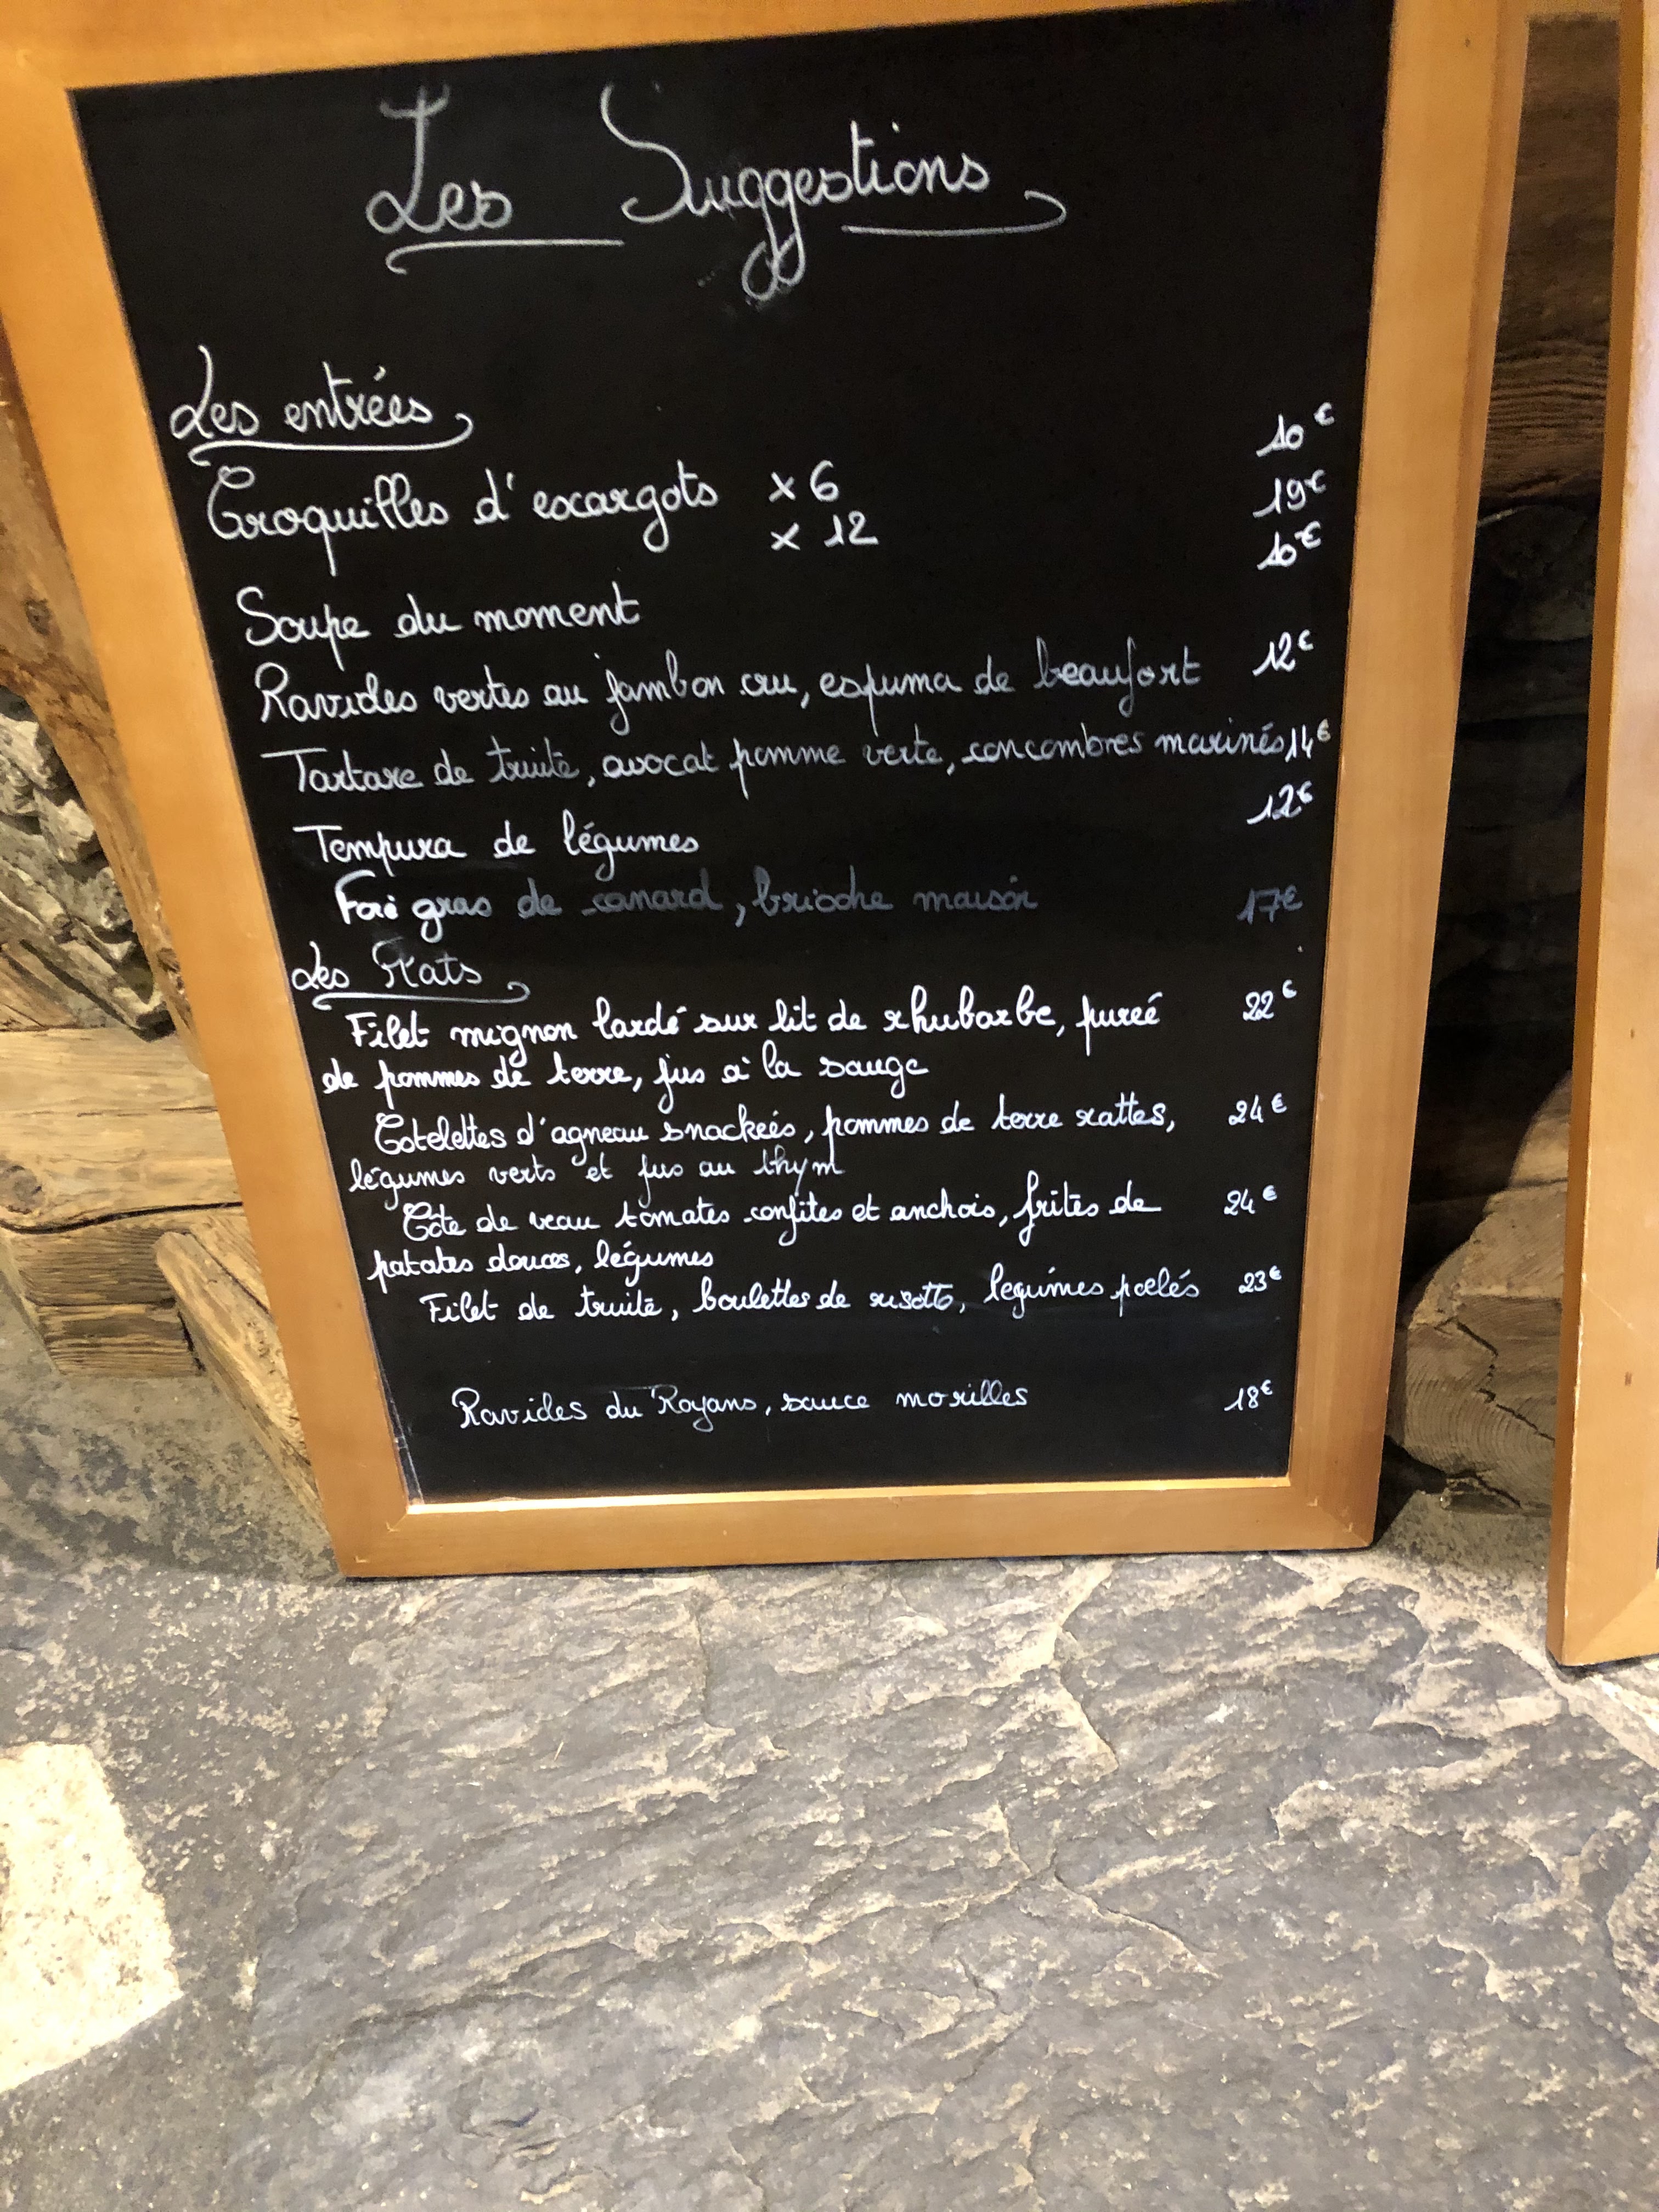 Les Suggestions
Les entrées
Croquilles d'escargots x 6 10€
x 12 19€
Soupe du moment 10€
Ravioles vertes au jambon cru, espuma de beaufort 12€
Tartare de truite, avocat pomme verte, concombres marinés 14€
Tempura de légumes 12€
Foie gras de canard, brioche maison 17€
Les Plats
Filet mignon lardé sur lit de rhubarbe, pureé 22€
de pommes de terre, jus à la sauge
Cotelettes d'agneau snackeés, pommes de terre rattes, 24€
légumes verts et jus au thym
Côte de veau tomates confites et anchois, frites de 24€
patates douces, légumes
Filet de truite, boulettes de risotto, legumes poelés 23€
Ravioles du Royans, sauce morilles 18€